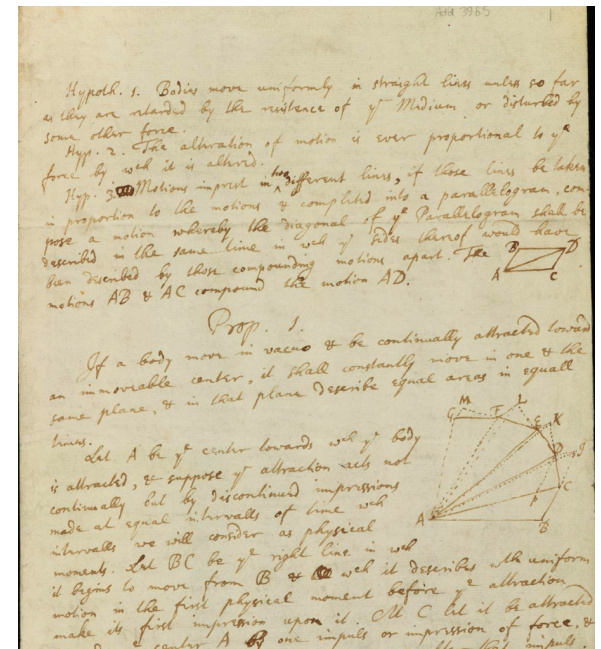 Add 3965
1
Hypoth. 1. Bodies move uniformly in straight lines unless so far
as they are retarded by the resistence of yᵉ Medium or disturbed by
some other force.
Hyp. 2. The alteration of motion is ever proportional to yᵉ
force by wᶜʰ it is altered.
Hyp. 3. Motions imprest in two different lines, if those lines be taken
in proportion to the motions & completed into a parallelogram, com-
pose a motion whereby the diagonal of yᵉ Parallelogram shall be
described in the same time in wᶜʰ yᵉ sides thereof would have
been described by those compounding motions apart. The
motions AB & AC compound the motion AD.
B D
A C
Prop. 1.
If a body move in vacuo & be continually attracted toward
an immoveable center, it shall constantly move in one & the
same plane, & in that plane describe equal areas in equall
times.
Let A be yᵉ center towards wᶜʰ yᵉ body
is attracted, & suppose yᵉ attraction acts not
continually but by discontinued impressions
made at equal intervalls of time wᶜʰ
intervalls we will consider as physical
moments. Let BC be yᵉ right line in wᶜʰ
it begins to move from B & wᶜʰ it describes wᵗʰ uniform
motion in the first physical moment before yᵉ attraction
make its first impression upon it. At C let it be attracted
towards yᵉ center A by one impuls or impression of force, &
M L
G F E K
D I
C
A B